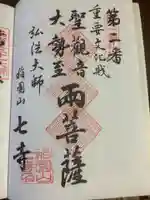 第二番
重要文化財
聖觀音
大勢至
両菩薩
弘法大師
稲園山
七寺